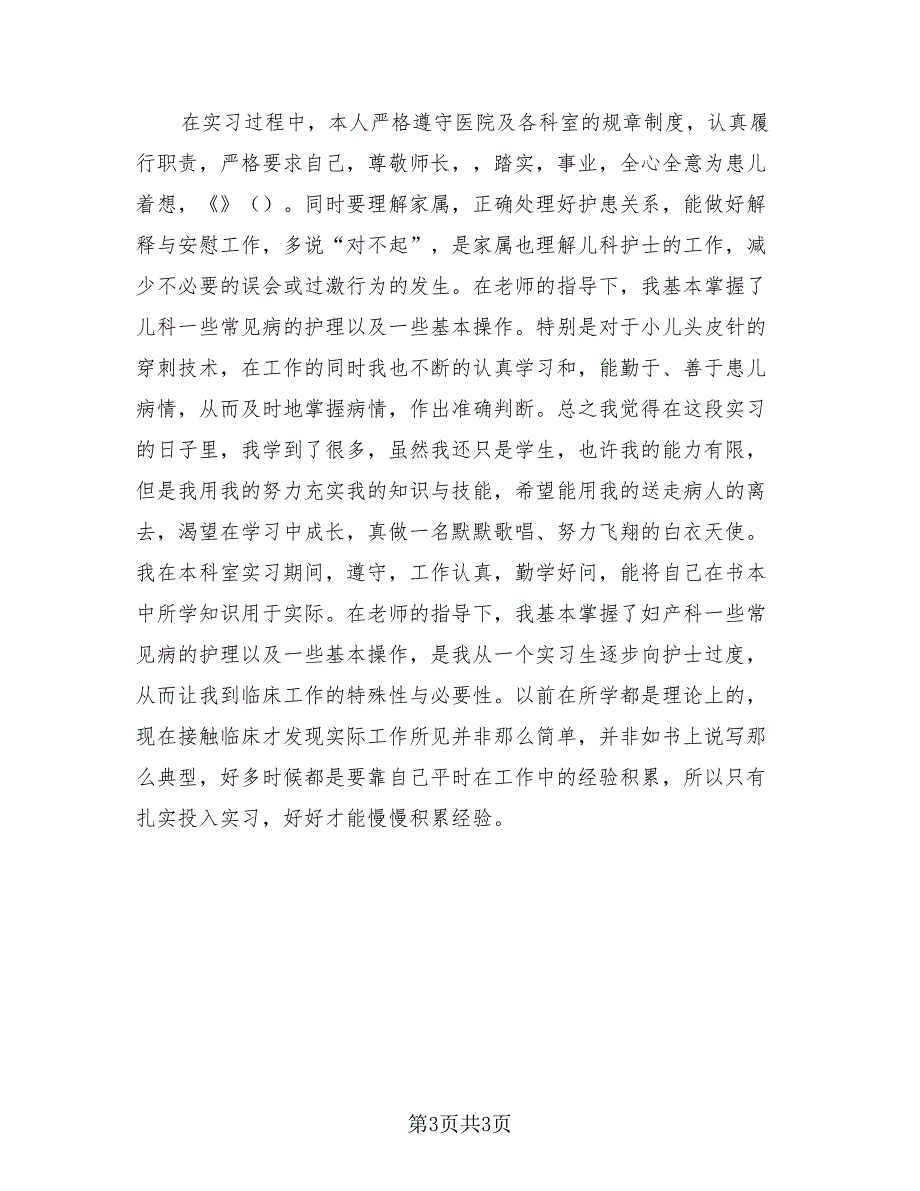 在实习过程中，本人严格遵守医院及各科室的规章制度，认真履
行职责，严格要求自己，尊敬师长，，踏实，事业，全心全意为患儿
着想，《》（）。同时要理解家属，正确处理好护患关系，能做好解
释与安慰工作，多说“对不起”，是家属也理解儿科护士的工作，减
少不必要的误会或过激行为的发生。在老师的指导下，我基本掌握了
儿科一些常见病的护理以及一些基本操作。特别是对于小儿头皮针的
穿刺技术，在工作的同时我也不断的认真学习和，能勤于、善于患儿
病情，从而及时地掌握病情，作出准确判断。总之我觉得在这段实习
的日子里，我学到了很多，虽然我还只是学生，也许我的能力有限，
但是我用我的努力充实我的知识与技能，希望能用我的送走病人的离
去，渴望在学习中成长，真做一名默默歌唱、努力飞翔的白衣天使。
我在本科室实习期间，遵守，工作认真，勤学好问，能将自己在书本
中所学知识用于实际。在老师的指导下，我基本掌握了妇产科一些常
见病的护理以及一些基本操作，是我从一个实习生逐步向护士过度，
从而让我到临床工作的特殊性与必要性。以前在所学都是理论上的，
现在接触临床才发现实际工作所见并非那么简单，并非如书上说写那
么典型，好多时候都是要靠自己平时在工作中的经验积累，所以只有
扎实投入实习，好好才能慢慢积累经验。
第3页共3页